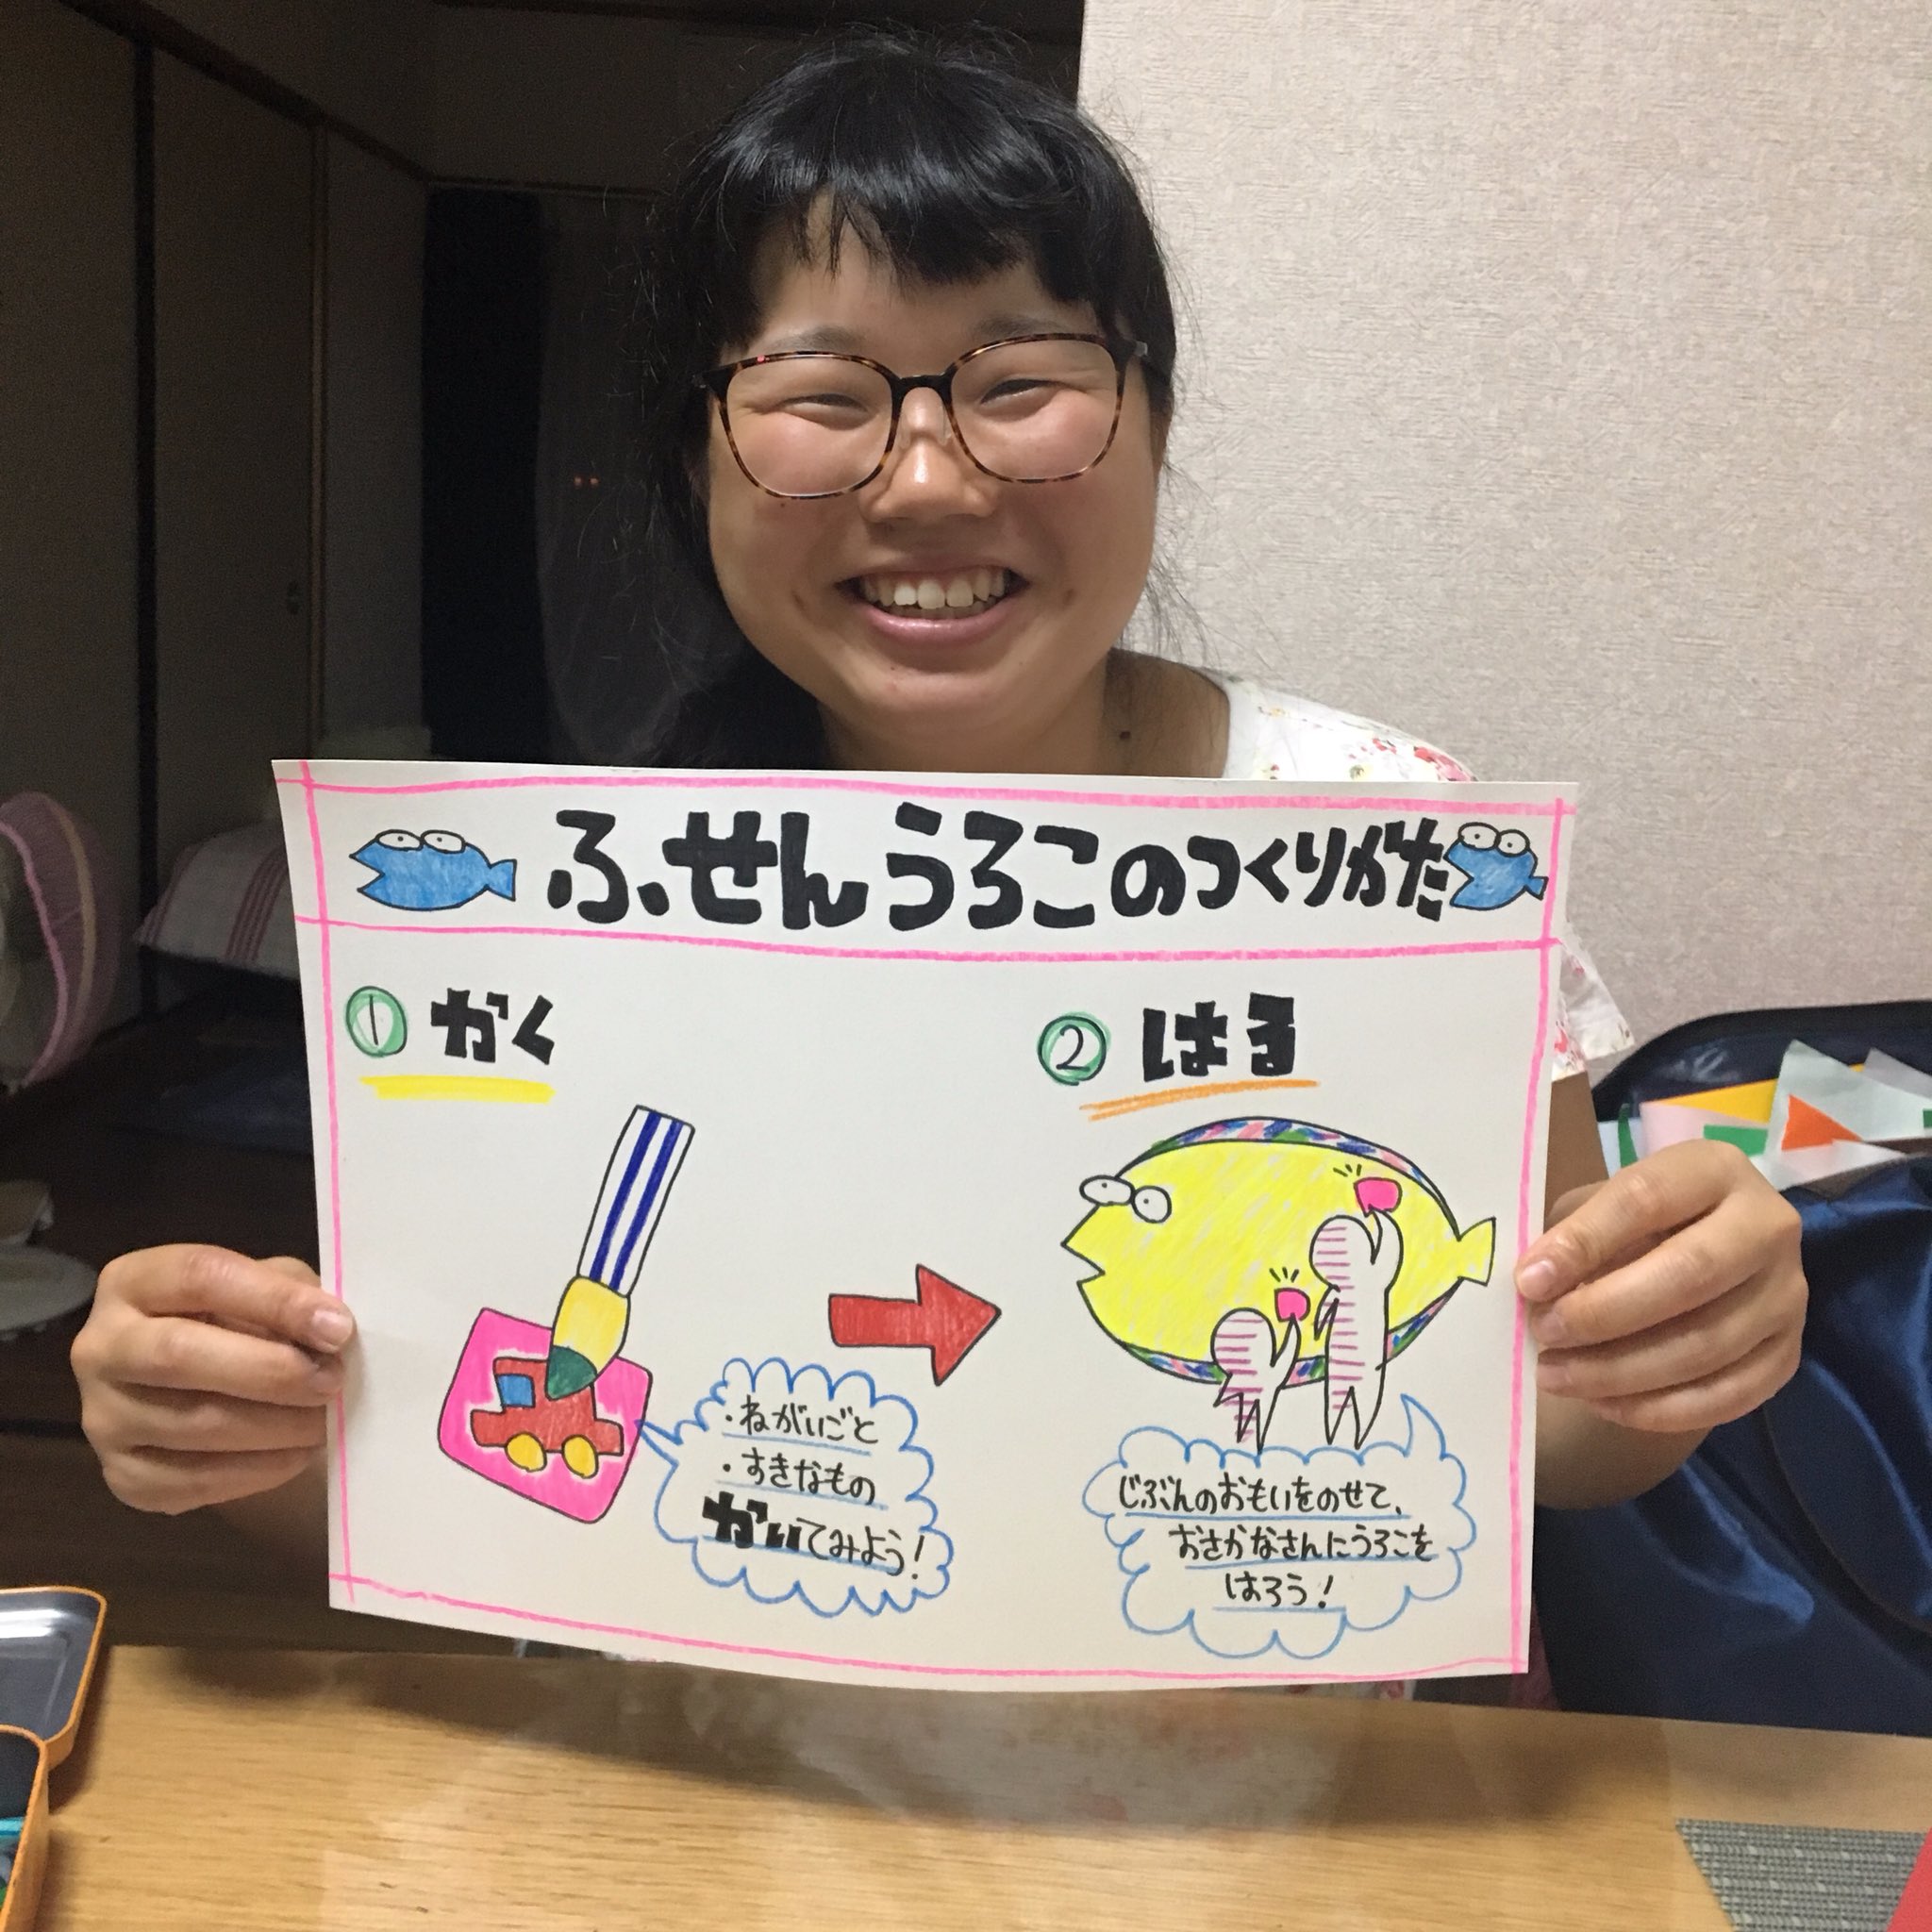 ふせんうろこのつくりがた
① かく
・ねがいごと
・すきなもの
かいてみよう!
② はる
じぶんのおもいをのせて、
おさかなさんにうろこを
はろう!